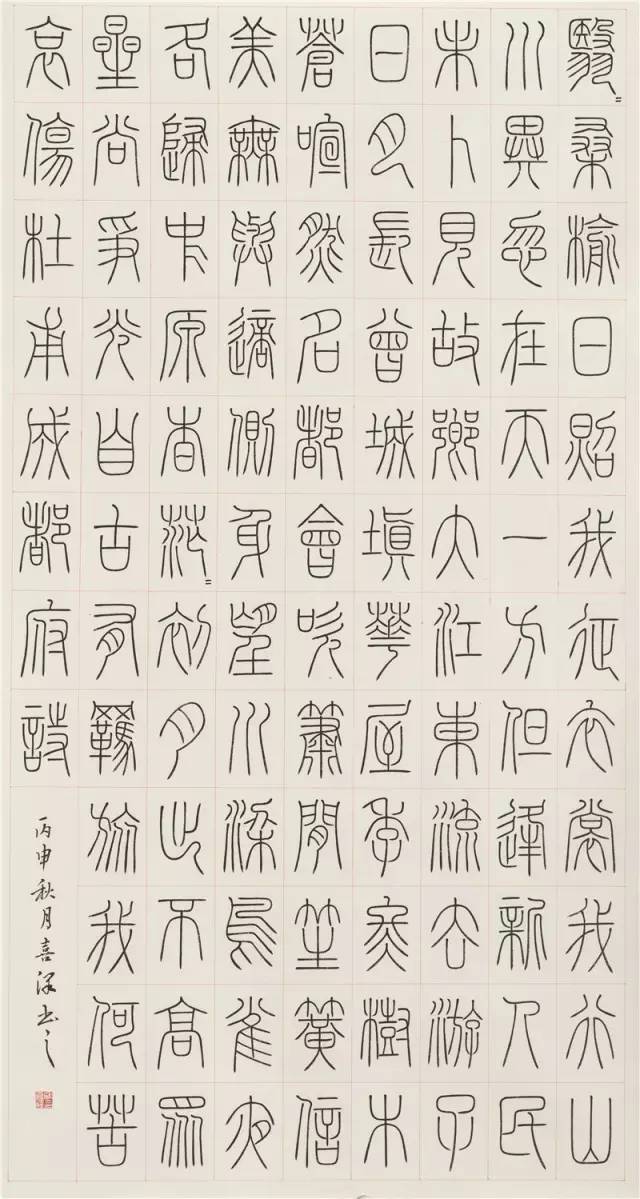 翳〻桑榆日照我征衣裳我行山
川異忽在天一方但逢新人民
未卜見故鄉大江東流去游子
日月長曾城填華屋季冬樹木
蒼喧然名都會吹簫間笙簧信
美無與適側身望川梁鳥雀夜
各歸中原杳茫〻初月出不高眾
星尚爭光自古有羈旅我何苦
哀傷杜甫成都府詩
丙申秋月喜書之